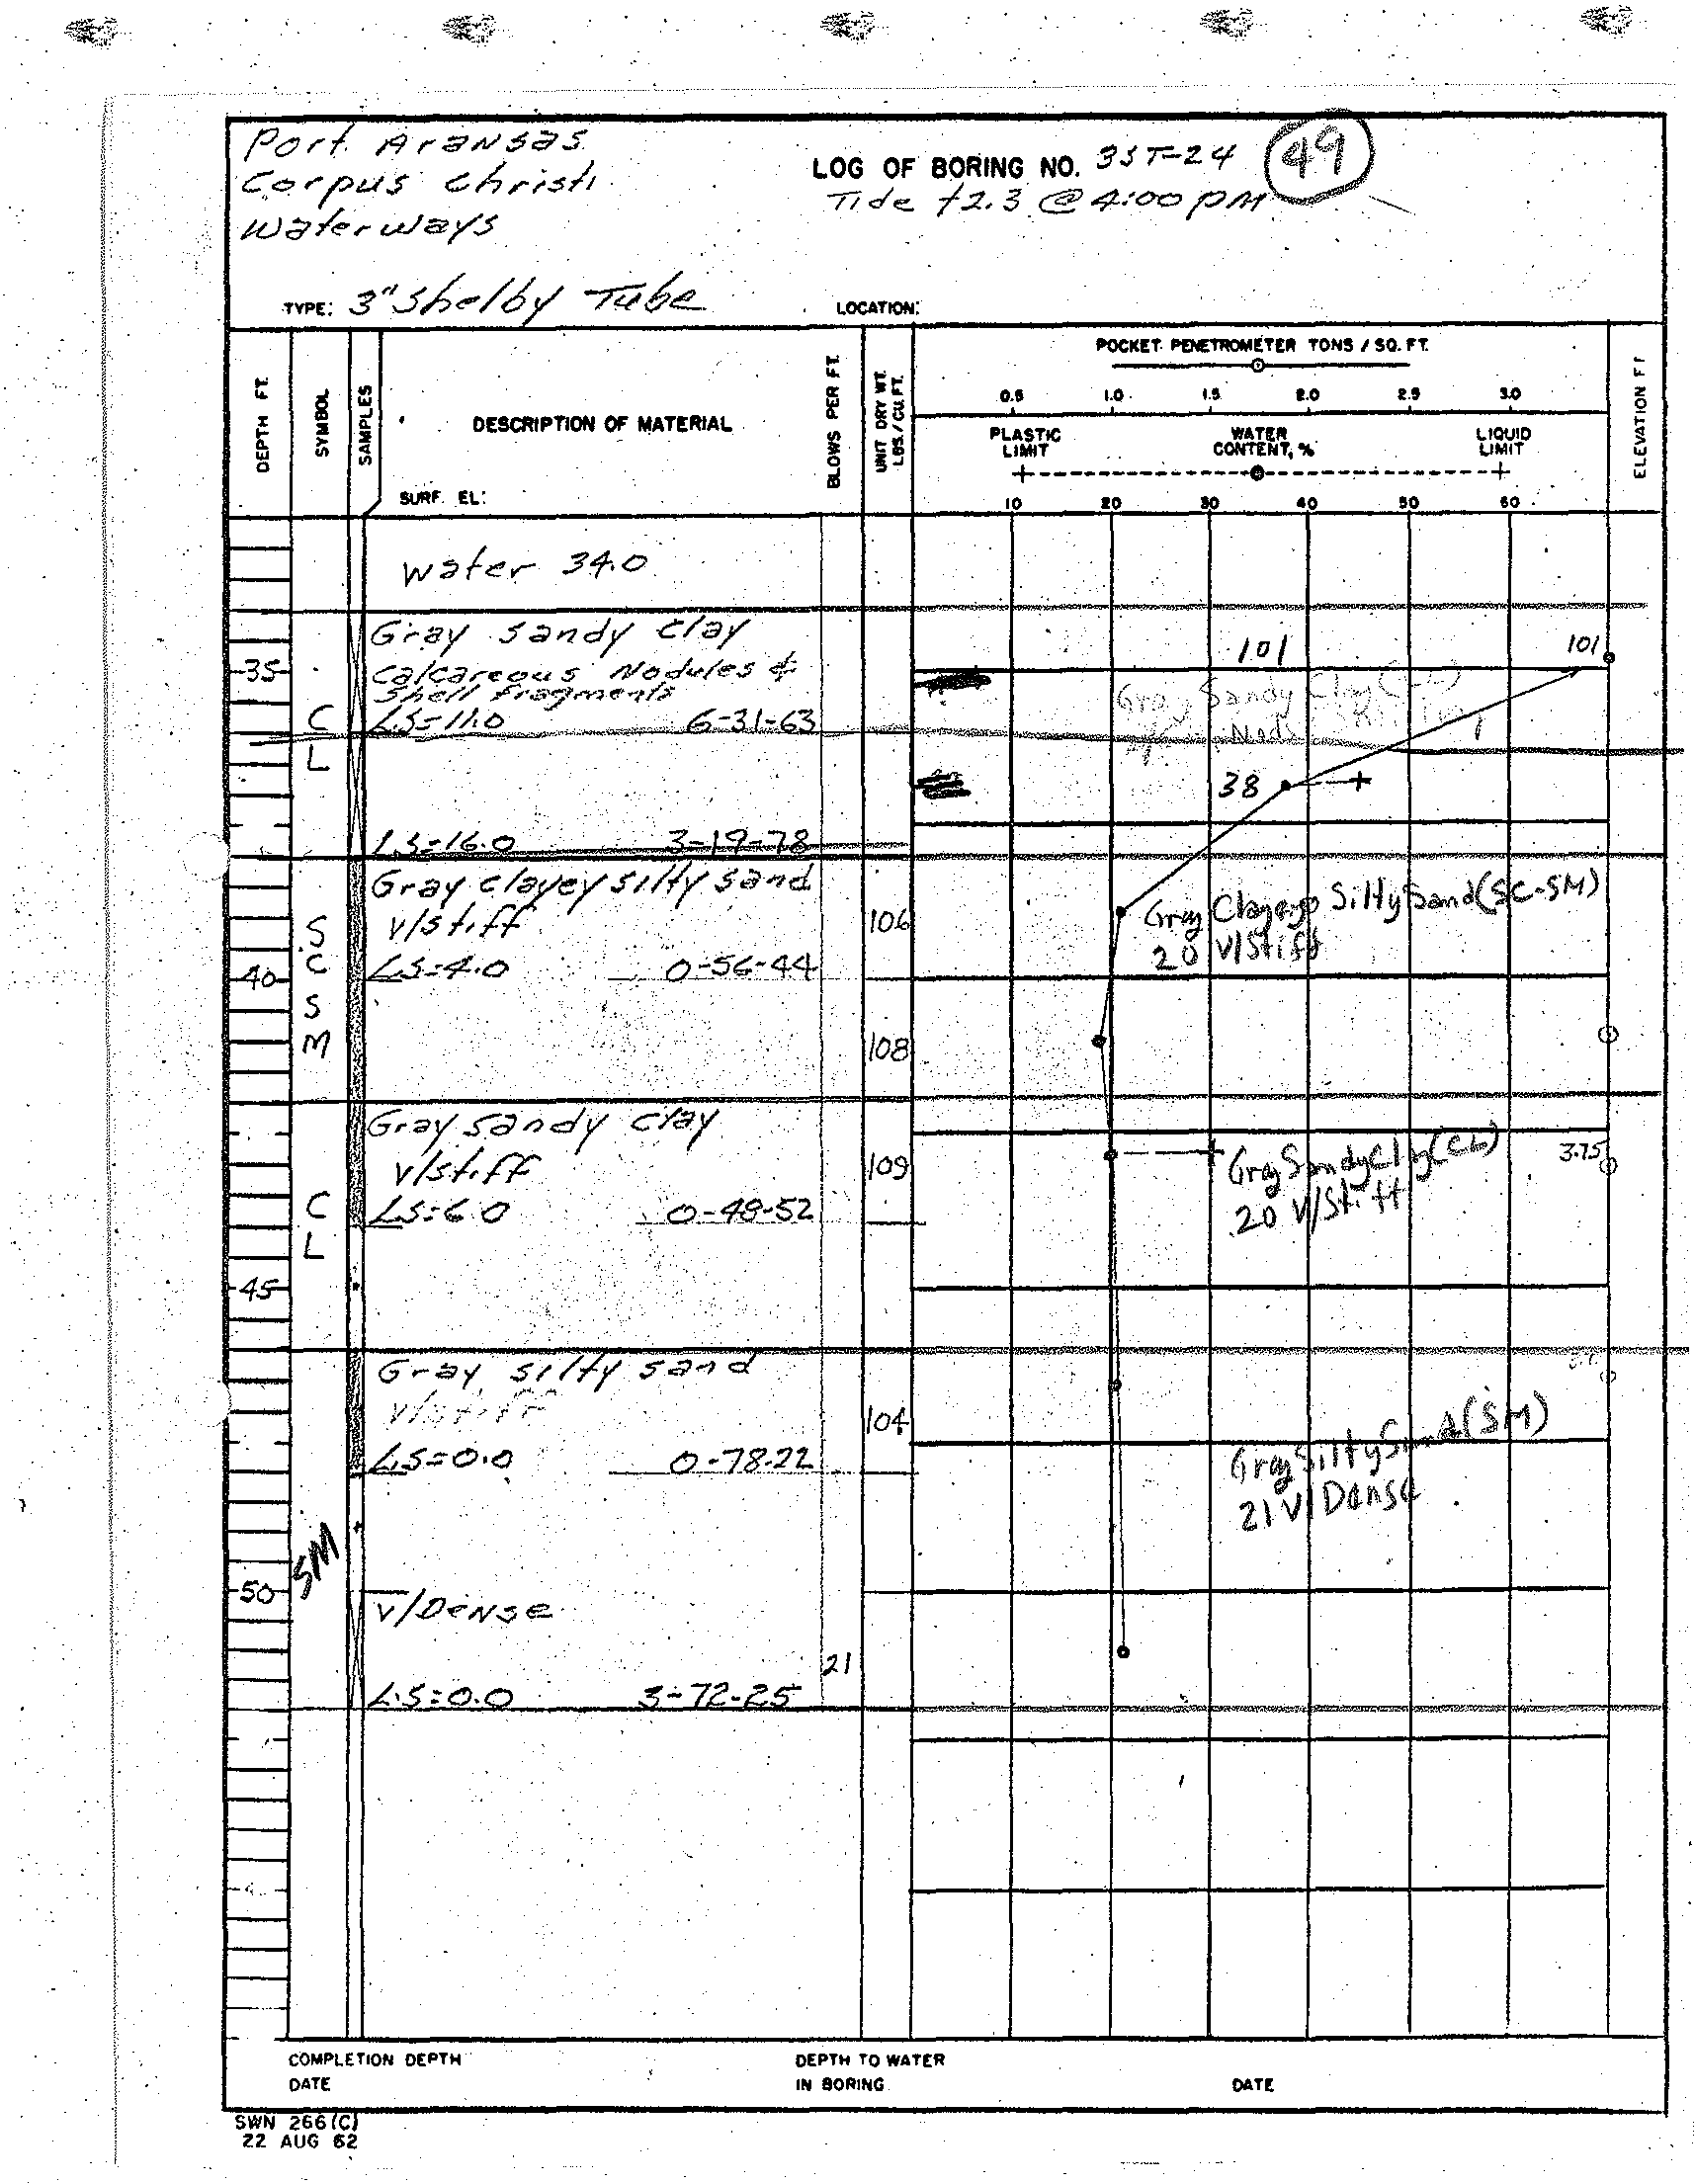 Port Aransas
Corpus Christi
Waterways
LOG OF BORING NO. 3ST-24 49
Tide +2.3 @ 4:00 PM
TYPE: 3" Shelby Tube
LOCATION:
DEPTH FT.
SYMBOL
SAMPLES
DESCRIPTION OF MATERIAL
SURF. EL:
BLOWS PER FT.
UNIT DRY WT. LBS./CU.FT.
POCKET PENETROMETER TONS / SQ. FT.
0.5 1.0 1.5 2.0 2.5 3.0
PLASTIC LIMIT
WATER CONTENT, %
LIQUID LIMIT
10 20 30 40 50 60
ELEVATION FT
Water 34.0
Gray sandy clay
101 101
35 Calcareous Nodules &
Shell Fragments
Gray Sandy Clay
CL
LS=11.0 6-31-63
38
LS=16.0 3-19-78
Gray clayey silty sand
v/stiff
106
Gray Clayey Silty Sand (SC-SM)
20 V/Stiff
SC SM
40 LS=4.0 0-56-44
108
Gray sandy clay
v/stiff
109
Gray Sandy Clay (CL) 3.75
20 V/Stiff
CL
LS=6.0 0-48-52
45
Gray silty sand
v/stiff
104
Gray Silty Sand (SM)
21 V/Dense
LS=0.0 0-78-22
SM
50
v/Dense
21
LS=0.0 3-72-25
COMPLETION DEPTH
DATE
DEPTH TO WATER
IN BORING
DATE
SWN 266(C)
22 AUG 62